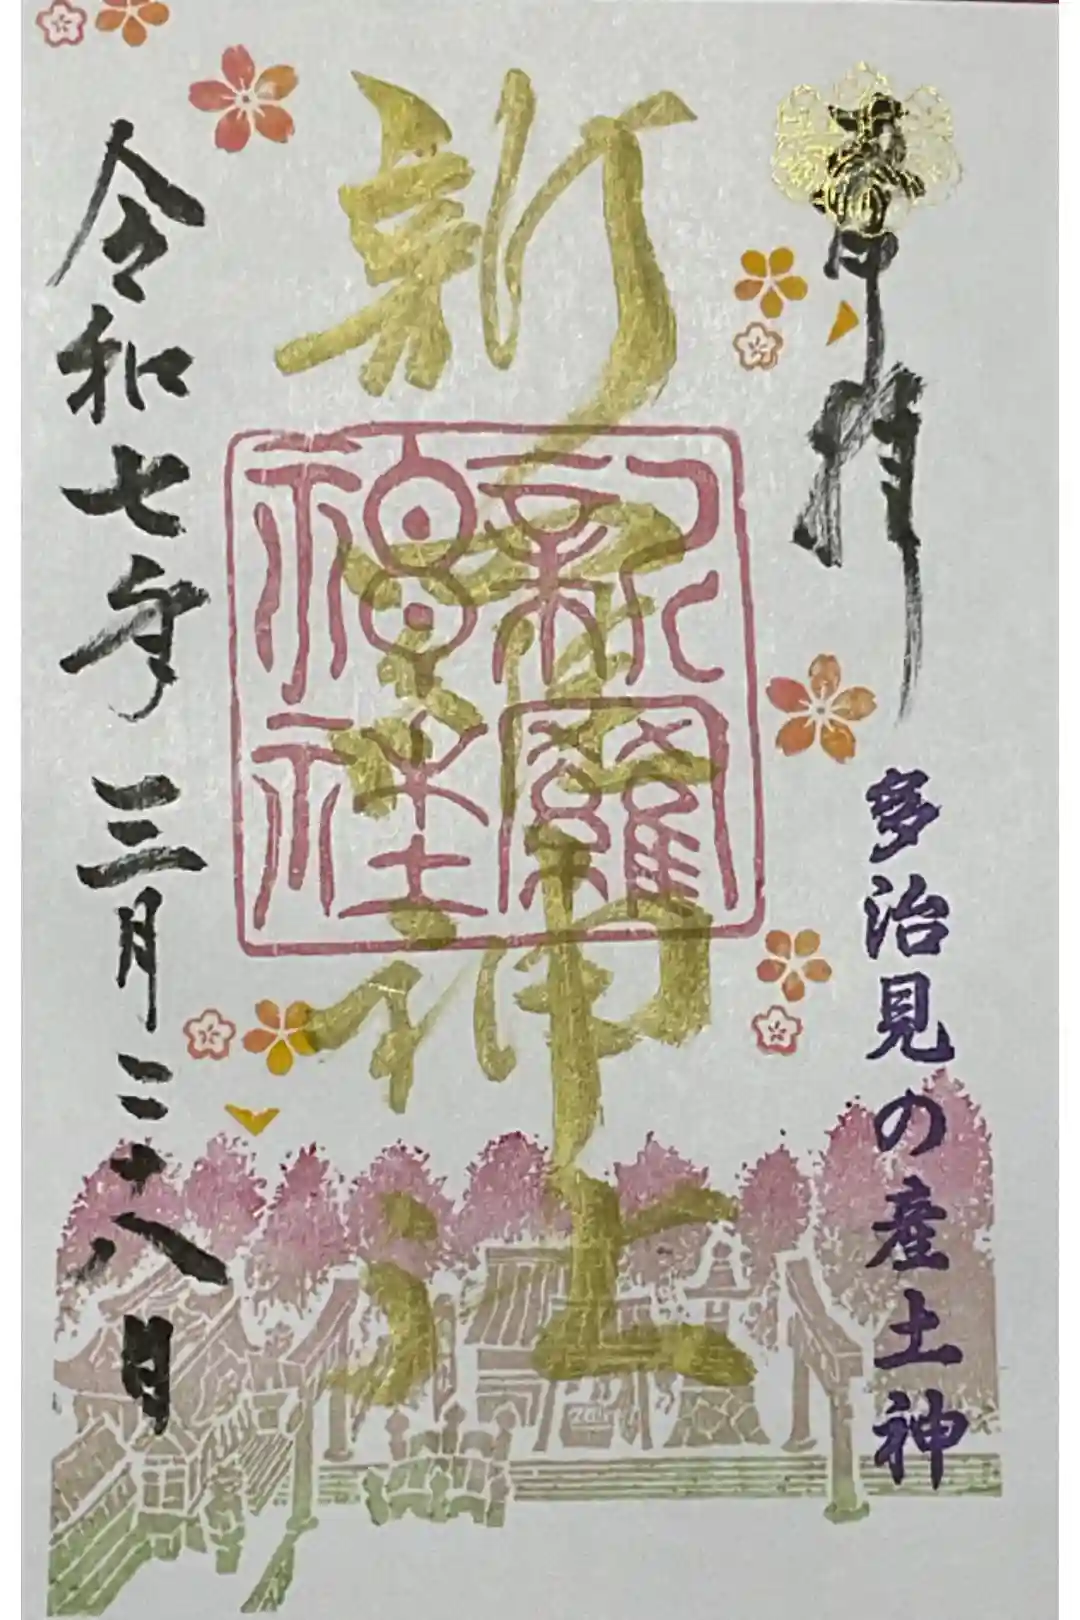 奉拝
多治見の産土神
新羅神社
新羅神社
令和七年三月二十八日